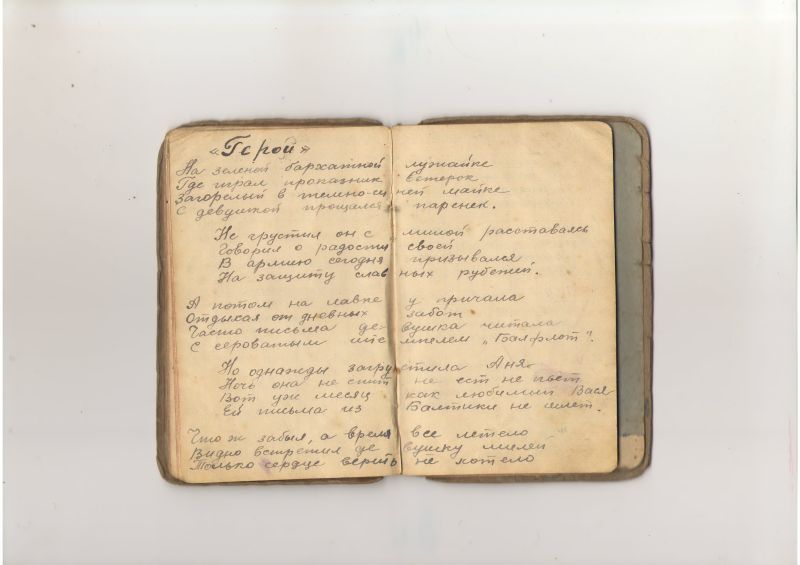 «Герой»
На зеленой бархатной лужайке
Где играл проказник ветерок
Загорелый в темно-синей майке
С девушкой прощался паренек.
Не грустил он с милой расставаясь
Говорил о радости своей
В армию сегодня призывался
На защиту славных рубежей.
А потом на лавке у причала
Отдыхая от дневных забот
Часто письма девушка читала
С сероватым штемпелем „Балфлот".
Но однажды загрустила Аня
Ночь она не спит не ест не пьет
Вот уж месяц как любимый Вася
Ей письма из Балтики не шлет.
Что ж забыл, а время все летело
Видно встретил девушку милей
Только сердце верить не хотело